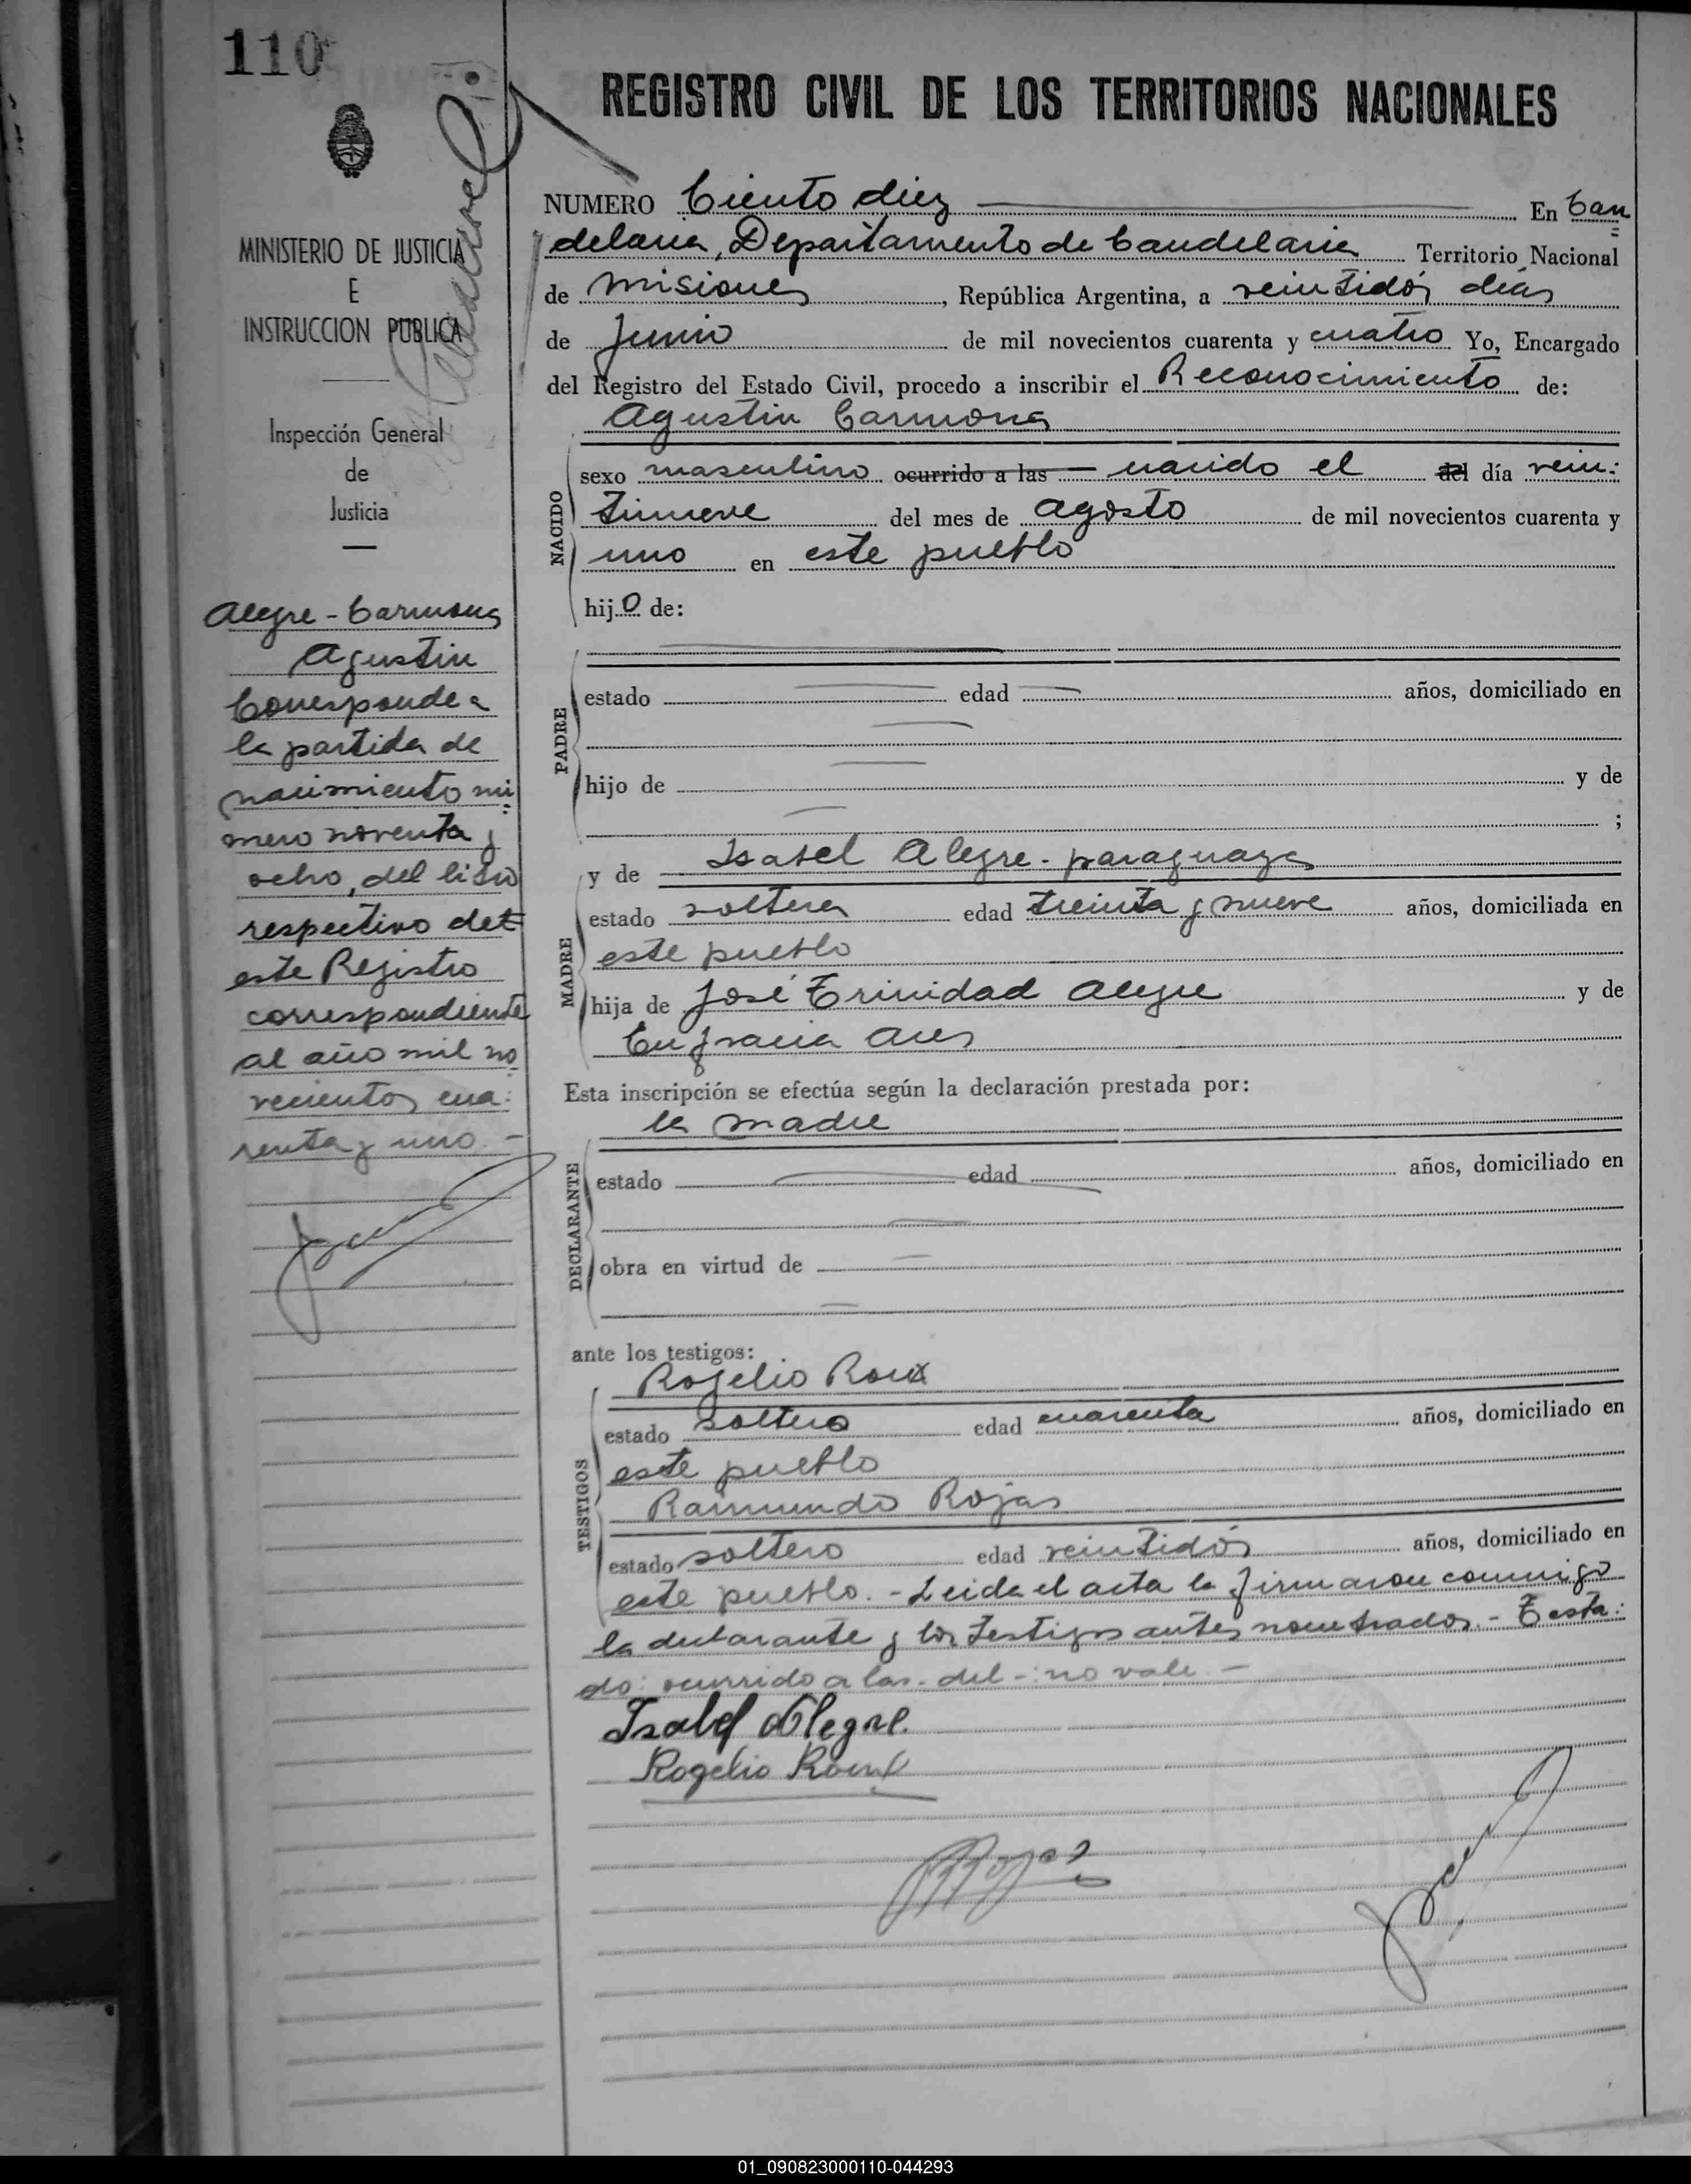 110
REGISTRO CIVIL DE LOS TERRITORIOS NACIONALES
MINISTERIO DE JUSTICIA
E
INSTRUCCION PUBLICA
Inspección General
de
Justicia
Alegre - Carmona
Agustin
Corresponde a
la partida de
nacimiento nú
mero noventa y
ocho, del libro
respectivo de
este Registro
correspondiente
al año mil no
vecientos cua:
renta y uno. -
NUMERO Ciento diez En Can
delaria, Departamento de Candelaria Territorio Nacional
de Misiones, República Argentina, a veintidós días
de Junio de mil novecientos cuarenta y cuatro Yo, Encargado
del Registro del Estado Civil, procedo a inscribir el Reconocimiento de:
Agustin Carmona
NACIDO
sexo masculino ocurrido a las nacido el del día vein:
tinueve del mes de agosto de mil novecientos cuarenta y
uno en este pueblo
hijo de:
PADRE
estado edad años, domiciliado en
hijo de y de
;
MADRE
y de Isabel Alegre - paraguaya
estado soltera edad treinta y nueve años, domiciliada en
este pueblo
hija de José Trinidad Alegre y de
Eufracia
Esta inscripción se efectúa según la declaración prestada por:
la madre
DECLARANTE
estado edad años, domiciliado en
obra en virtud de
ante los testigos:
TESTIGOS
Rogelio Roux
estado soltero edad cuarenta años, domiciliado en
este pueblo
Raimundo Rojas
estado soltero edad veintidós años, domiciliado en
este pueblo. - Leida el acta la firmaron conmigo
la declarante y los testigos antes nombrados. - Testa:
do: ocurrido a las - del -: no vale. -
Isabel Alegre.
Rogelio Roux
01_090823000110-044293